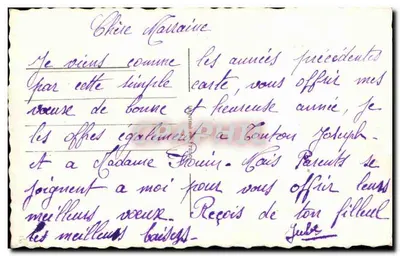 Chère Marraine
Je viens comme les années précédentes
par cette simple carte, vous offrir mes
vœux de bonne et heureuse année, je
les offres également à Tonton Joseph
et a Madame Mes Parents se
joignent a moi pour vous offrir leurs
meilleurs vœux. Reçois de ton filleul
les meilleurs baisers.